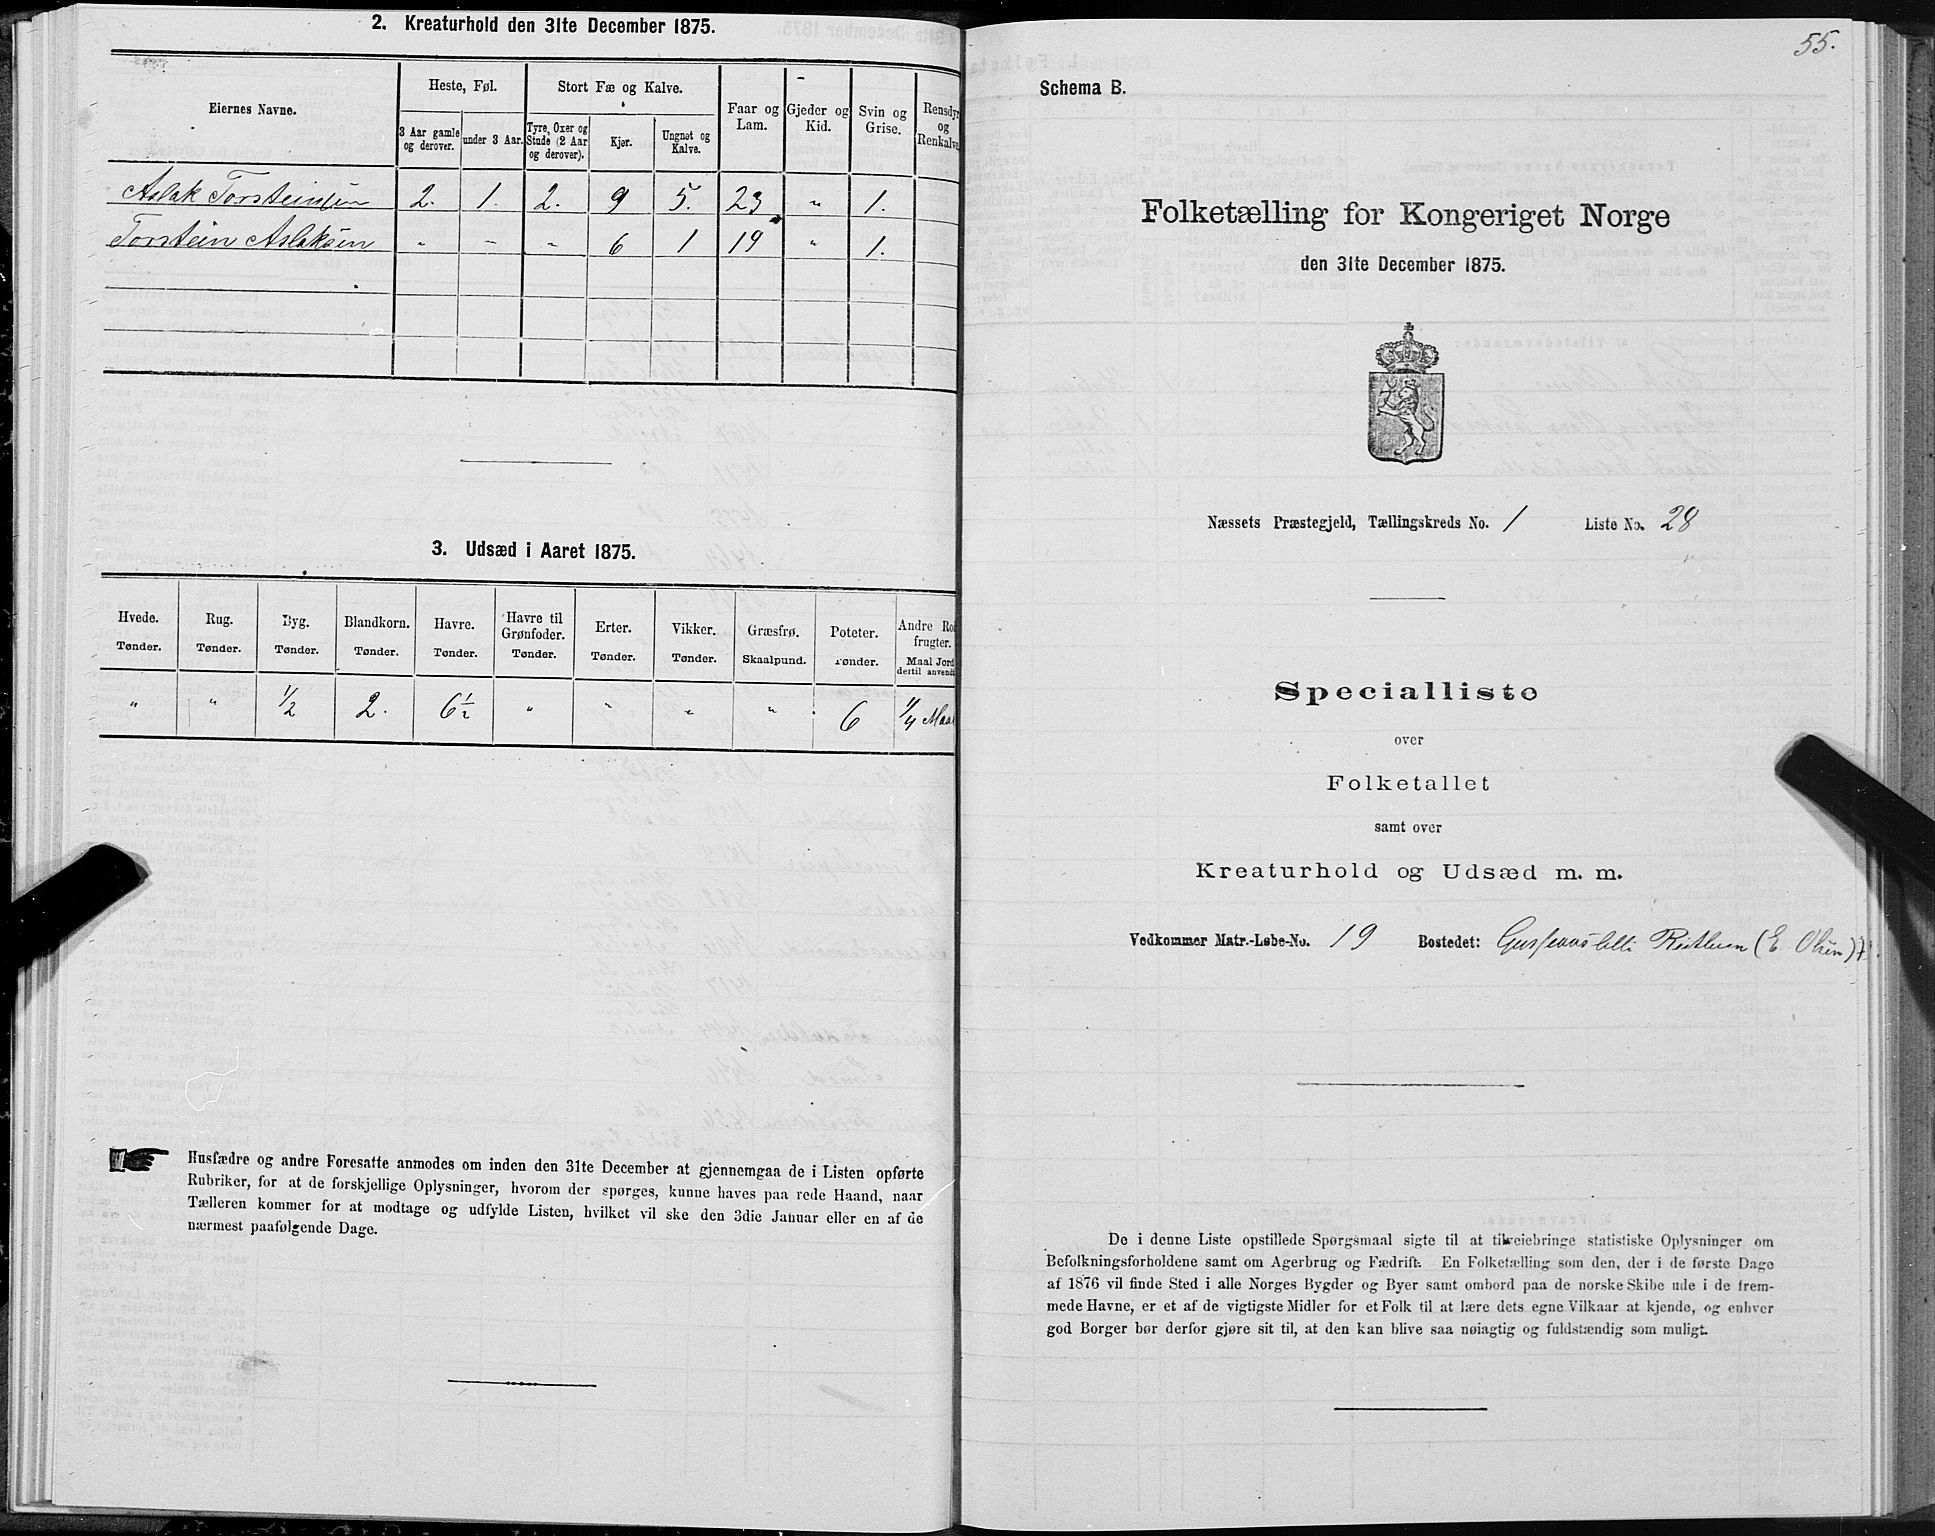 2. Kreaturhold den 31te December 1875.
Eiernes Navne.
Heste, Føl.
Stort Fæ og Kalve.
Faar og Lam.
Gjeder og Kid.
Svin og Grise.
Rensdyr og Renkalve
3 Aar gamle og derover.
under 3 Aar.
Tyre, Oxer og Stude (2 Aar og derover).
Kjør.
Ungnøt og Kalve.
Aslak Torsteinsen 2. 1. 2. 9 5. 23 " 1.
Torstein Aslaksen " " " 6 1 19 " 1.
3. Udsæd i Aaret 1875.
Hvede. Rug. Byg. Blandkorn. Havre. Havre til Grønfoder. Erter. Vikker. Græsfrø. Poteter. Andre Ro frugter.
Tønder. Tønder. Tønder. Tønder. Tønder. Tønder. Tønder. Tønder. Skaalpund. Tønder. Maal Jord dertil anvendt
" " 1/2 2. 6 1/2 " " " " 6 1/4 Maal
Husfædre og andre Foresatte anmodes om inden den 31te December at gjennemgaa de i Listen opførte
Rubriker, for at de forskjellige Oplysninger, hvorom der spørges, kunne haves paa rede Haand, naar
Tælleren kommer for at modtage og udfylde Listen, hvilket vil ske den 3die Januar eller en af de
nærmest paafølgende Dage.
55.
Schema B.
Folketælling for Kongeriget Norge
den 31te December 1875.
Næssets Præstegjeld, Tællingskreds No. 1 Liste No. 28
Specialliste
over
Folketallet
samt over
Kreaturhold og Udsæd m. m.
Vedkommer Matr.-Løbe-No. 19 Bostedet: (E. Olsen)
De i denne Liste opstillede Spørgsmaal sigte til at tilveiebringe statistiske Oplysninger om
Befolkningsforholdene samt om Agerbrug og Fædrift. En Folketælling som den, der i de første Dage
af 1876 vil finde Sted i alle Norges Bygder og Byer samt ombord paa de norske Skibe ude i de frem-
mede Havne, er et af de vigtigste Midler for et Folk til at lære dets egne Vilkaar at kjende, og enhver
god Borger bør derfor gjøre sit til, at den kan blive saa nøiagtig og fuldstændig som muligt.